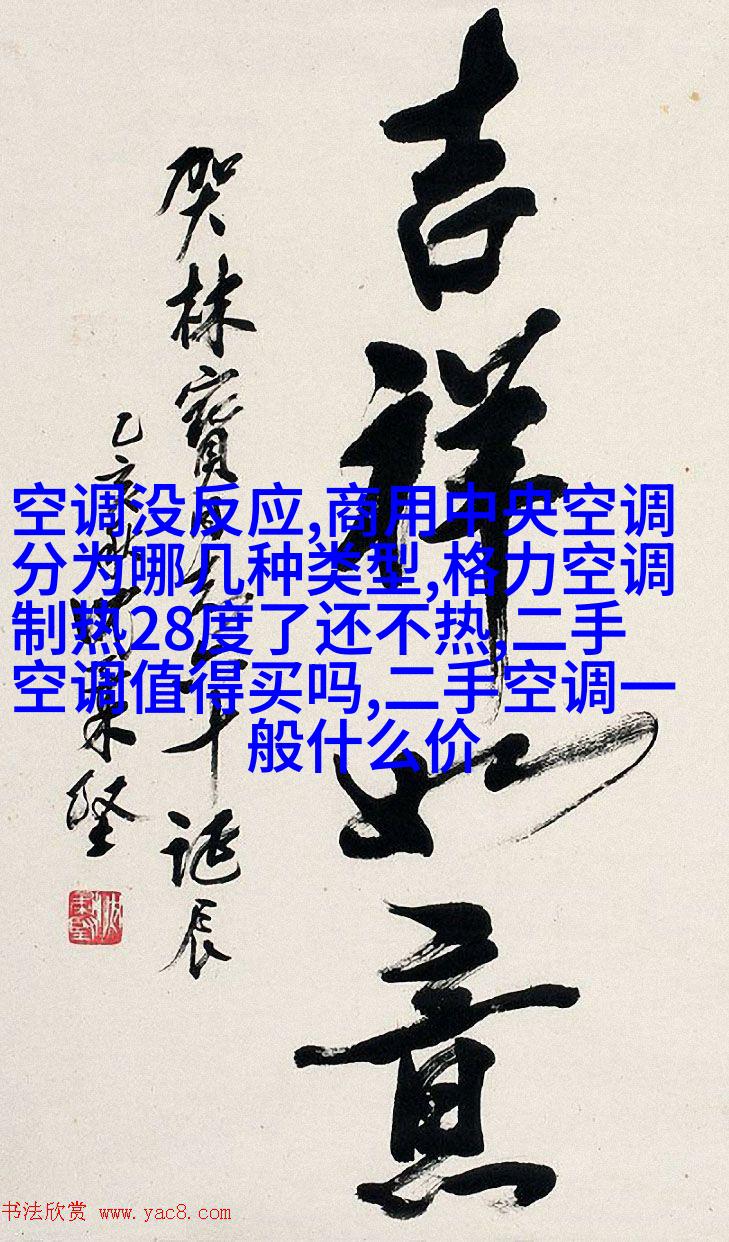 吉祥如意
贺林寶十诞辰
乙亥秋
空调没反应,商用中央空调
分为哪几种类型,格力空调
制热28度了还不热,二手
空调值得买吗,二手空调一
般什么价
书法欣赏 www.yac8.com